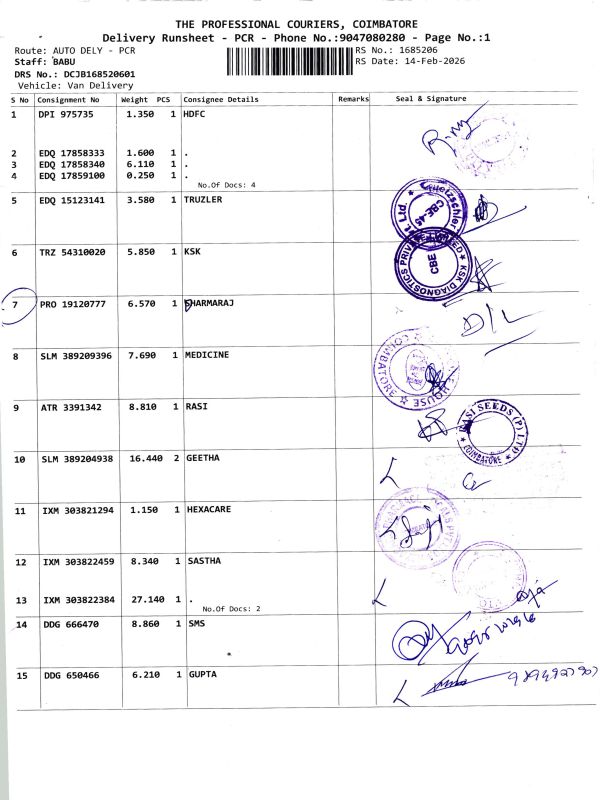 THE PROFESSIONAL COURIERS, COIMBATORE
Delivery Runsheet - PCR - Phone No.:9047080280 - Page No.:1
Route: AUTO DELY - PCR RS No.: 1685206
Staff: BABU RS Date: 14-Feb-2026
DRS No.: DCJB168520601
Vehicle: Van Delivery
S No Consignment No Weight PCS Consignee Details Remarks Seal & Signature
1 DPI 975735 1.350 1 HDFC
2 EDQ 17858333 1.600 1 .
3 EDQ 17858340 6.110 1 .
4 EDQ 17859100 0.250 1 .
No.Of Docs: 4
5 EDQ 15123141 3.580 1 TRUZLER
CBE-45
6 TRZ 54310020 5.850 1 KSK
KSK DIAGNOSTICS PRIVATE LIMITED
CBE
7 PRO 19120777 6.570 1 DHARMARAJ
D/L
8 SLM 389209396 7.690 1 MEDICINE
COIMBATORE
HOUSE
9 ATR 3391342 8.810 1 RASI
RASI SEEDS (P) LTD
COIMBATORE
10 SLM 389204938 16.440 2 GEETHA
11 IXM 303821294 1.150 1 HEXACARE
12 IXM 303822459 8.340 1 SASTHA
13 IXM 303822384 27.140 1 .
No.Of Docs: 2
14 DDG 666470 8.860 1 SMS
15 DDG 650466 6.210 1 GUPTA